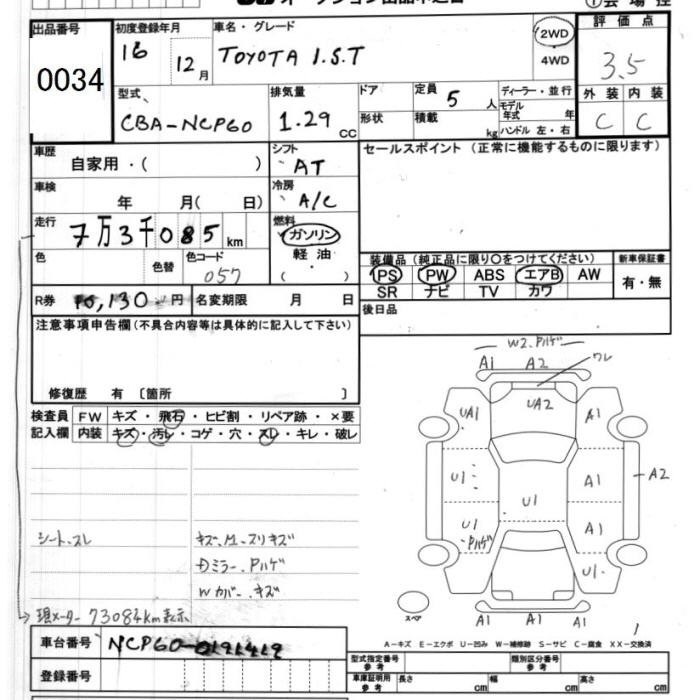 出品番号 初度登録年月 車名・グレード 2WD 評価点
0034 16 12月 TOYOTA I.S.T 4WD 3.5
型式 排気量 ドア 定員 5人 ディーラー・並行 外装 内装
CBA-NCP60 1.29 CC 形状 積載 kg モデル年式 年 C C
ハンドル 左・右
車歴 シフト セールスポイント(正常に機能するものに限ります)
自家用・( ) AT
車検 冷房
年 月( 日) A/C
走行 燃料
7万3千085km ガソリン
色 色替 色コード 軽油 装備品(純正品に限り○をつけてください) 新車保証書
057 ( ・ ) PS PW ABS エアB AW 有・無
R券 10,130円 名変期限 月 日 SR ナビ TV カワ
注意事項申告欄(不具合内容等は具体的に記入して下さい) 後日品
W2.Pハゲ
A1 A2 ワレ
修復歴 有 〔箇所 〕
検査員 FW キズ・飛石・ヒビ割・リペア跡・×要
記入欄 内装 キズ・汚レ・コゲ・穴・スレ・キレ・破レ
UA1 UA2 A1
U1 A1 A2
U1
U1 Pハゲ A1
U1
シート.スレ キズ.M.スリキズ
Dミラー.Pハゲ
Wカバー.キズ
スペア A1 A1 A1
現メーター 73084km表示
1
A-キズ E-エクボ U-凹み W-補修跡 S-サビ C-腐食 XX-交換済
車台番号 NCP60-0191412
型式指定番号 参考 類別区分番号 参考
登録番号 車庫証明用 参考 長さ cm 幅 cm 高さ cm